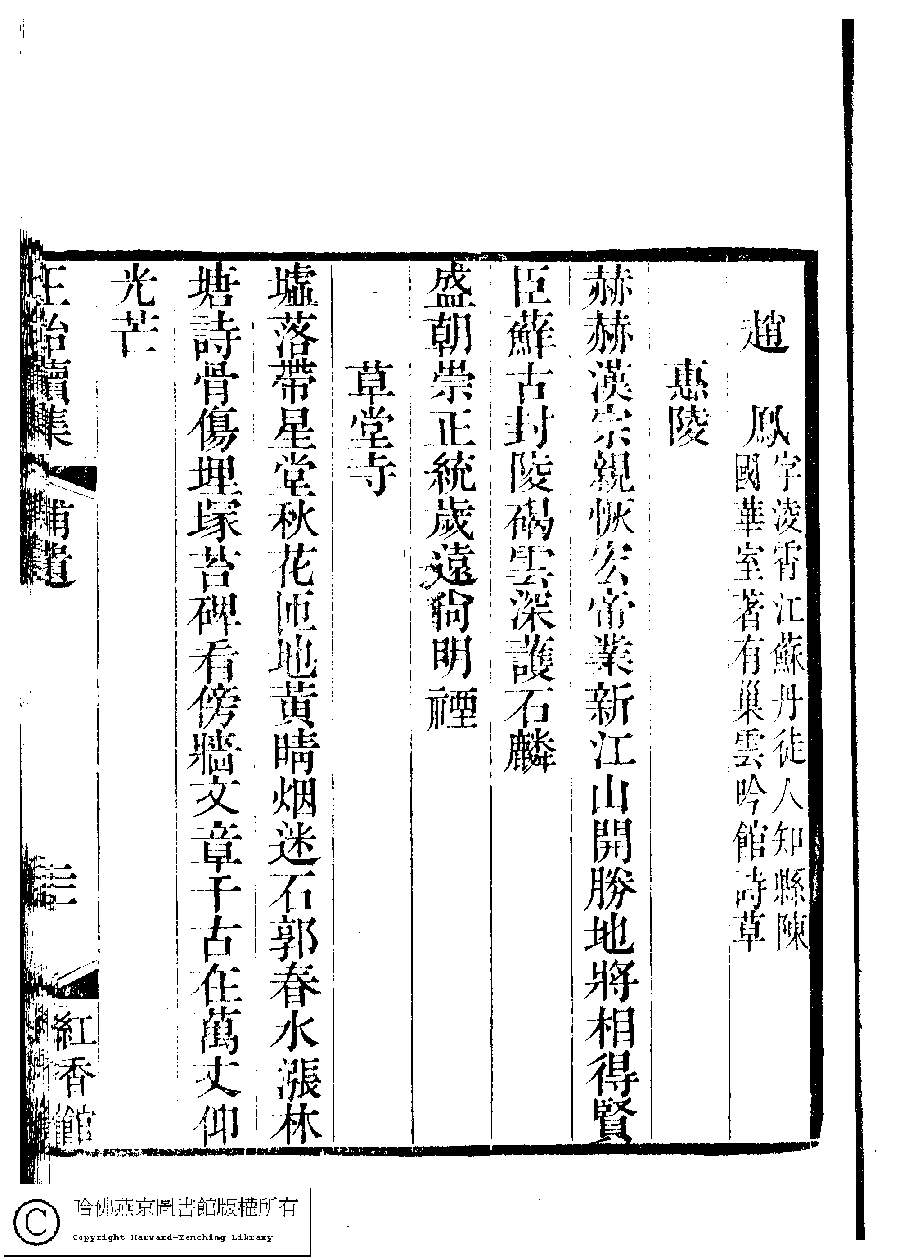 趙　鳳字淩霄江蘇丹徒人知縣陳
國華室著有巢雲吟館詩草
惠陵
赫赫漢宗親恢宏帝業新江山開勝地將相得賢
臣蘚古封陵碣雲深護石麟
盛朝崇正統歲遠尙明禋
草堂寺
墟落帶星堂秋花匝地黃晴烟迷石郭春水漲林
塘詩骨傷埋塚苔碑看傍牆文章千古在萬丈仰
光芒
續集
補遺
三
紅香館
哈佛燕京圖書館版權所有
Copyright Harvard-Yenching Library